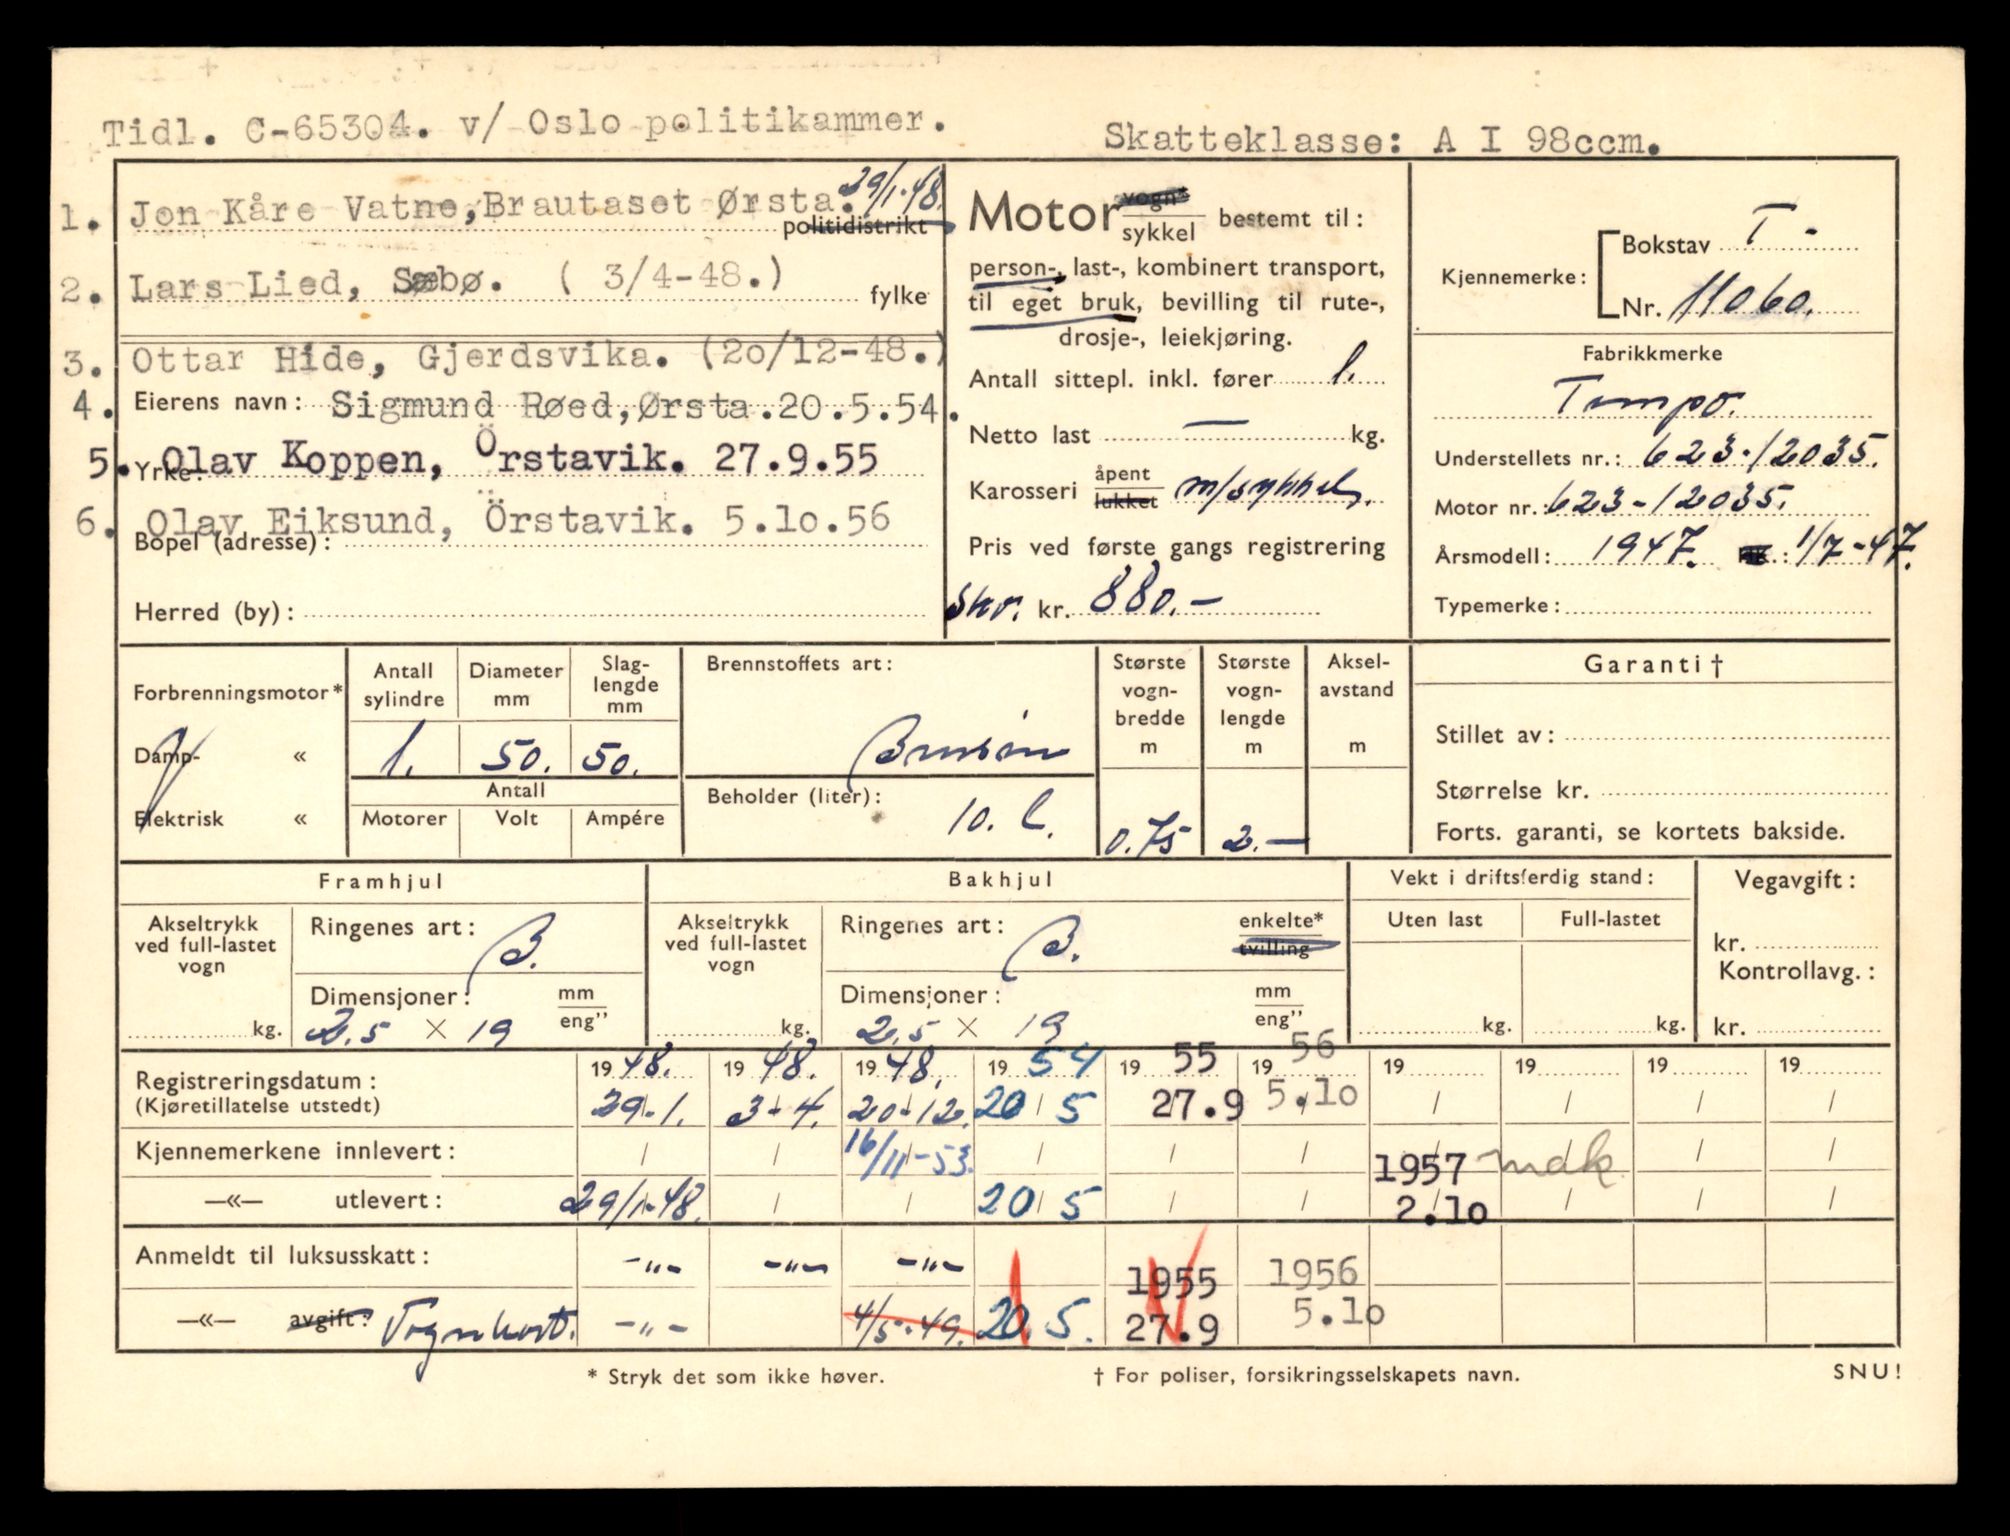 Tidl. C-65304. v/ Oslo politikammer.
Skatteklasse: A I 98ccm.
1. Jon Kåre Vatne, Brautaset Ørsta. 29/1-48.
politidistrikt
2. Lars Lied, Sæbø. ( 3/4-48.)
fylke
3. Ottar Hide, Gjerdsvika. (20/12-48.)
4. Eierens navn: Sigmund Røed, Ørsta. 20.5.54.
5. Olav Koppen, Örstavik. 27.9.55
Yrke:
6. Olav Eiksund, Örstavik. 5.10.56
Bopel (adresse):
Herred (by):
Motor vogn* sykkel bestemt til:
person-, last-, kombinert transport,
til eget bruk, bevilling til rute-,
drosje-, leiekjøring.
Antall sittepl. inkl. fører 1.
Netto last — kg.
Karosseri åpent lukket m/sykkel.
Pris ved første gangs registrering
Skr. kr. 880.-
Kjennemerke: Bokstav T-
Nr. 11060.
Fabrikkmerke
Tempo.
Understellets nr.: 623-12035.
Motor nr.: 623-12035.
Årsmodell: 1947. 1/7-47.
Typemerke:
Forbrenningsmotor*
Damp- «
Elektrisk «
Antall sylindre Diameter mm Slag-lengde mm
1. 50. 50.
Antall
Motorer Volt Ampére
Brennstoffets art:
Bensin
Beholder (liter):
10. l.
Største vogn-bredde m Største vogn-lengde m Aksel-avstand m
0.75 2.—
Garanti †
Stillet av:
Størrelse kr.
Forts. garanti, se kortets bakside.
Framhjul Bakhjul Vekt i driftsferdig stand: Vegavgift:
Akseltrykk ved full-lastet vogn kg.
Ringenes art: B.
Dimensjoner: mm eng"
2.5 × 19
Akseltrykk ved full-lastet vogn kg.
Ringenes art: B. enkelte* tvilling
Dimensjoner: mm eng"
2.5 × 19
Uten last Full-lastet
kg. kg.
kr.
Kontrollavg.:
kr.
Registreringsdatum: 19 48. 19 48. 19 48. 19 54 19 55 19 56 19 19 19 19
(Kjøretillatelse utstedt) 29-1. 3-4. 20-12. 20/5 27.9 5.10 / / / /
Kjennemerkene innlevert: / / 16/11-53. / / / 1957 mak / /
—«— utlevert: 29/1-48. / / 20/5 / / 2.10 / / /
Anmeldt til luksusskatt: -"- -"- -"- 1955 1956
—«— avgift: Vognkort. -"- 4/5-49. 20.5. 27.9 5.10
* Stryk det som ikke høver.
† For poliser, forsikringsselskapets navn.
SNU!